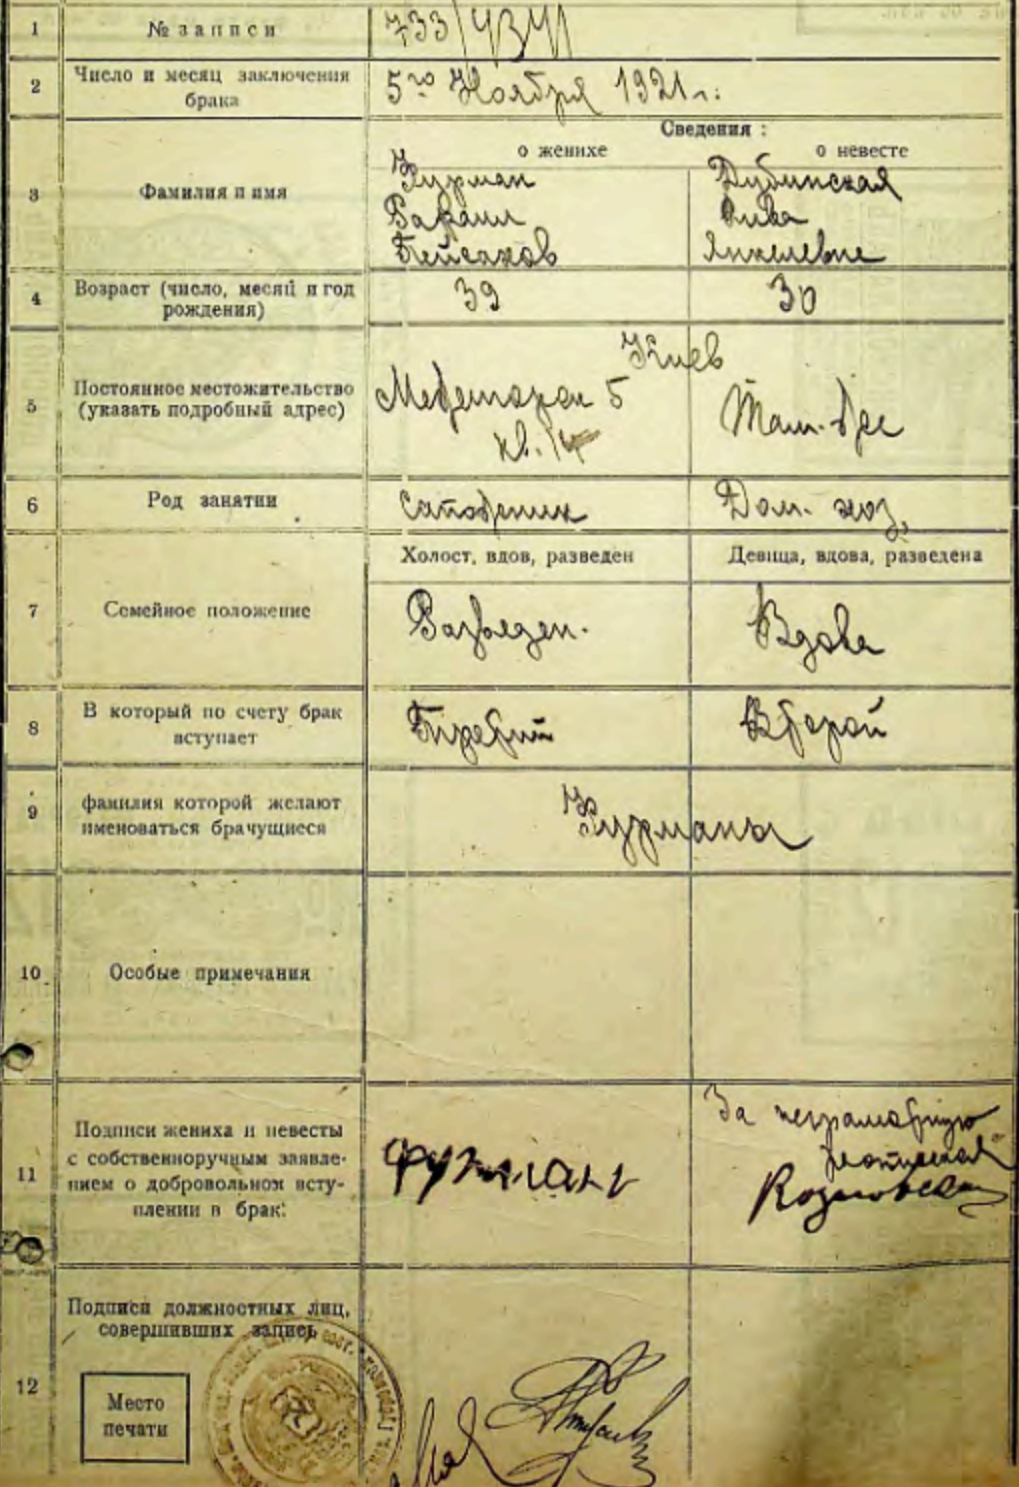 1 № записи 733/4341
2 Число и месяц заключения
брака
5го Ноября 1921 г.
Сведения :
о женихе о невесте
3 Фамилия и имя
Фурман Дубинская
Рафаил
Пейсахов Янкелевне
4 Возраст (число, месяц и год
рождения)
39 30
5 Постоянное местожительство
(указать подробный адрес)
Киев
5 Там-же
кв. 14
6 Род занятии Сапожник Дом. хоз.
Холост, вдов, разведен Девица, вдова, разведена
7 Семейное положение Разведен. Вдова
8 В который по счету брак
вступает
Третий Второй
9 фамилия которой желают
именоваться брачущиеся
Фурманы
10 Особые примечания
11 Подписи жениха и невесты
с собственноручным заявле-
нием о добровольном всту-
плении в брак:
Фурман
За неграмотную
12 Подписи должностных лиц,
совершивших запись
Место
печати